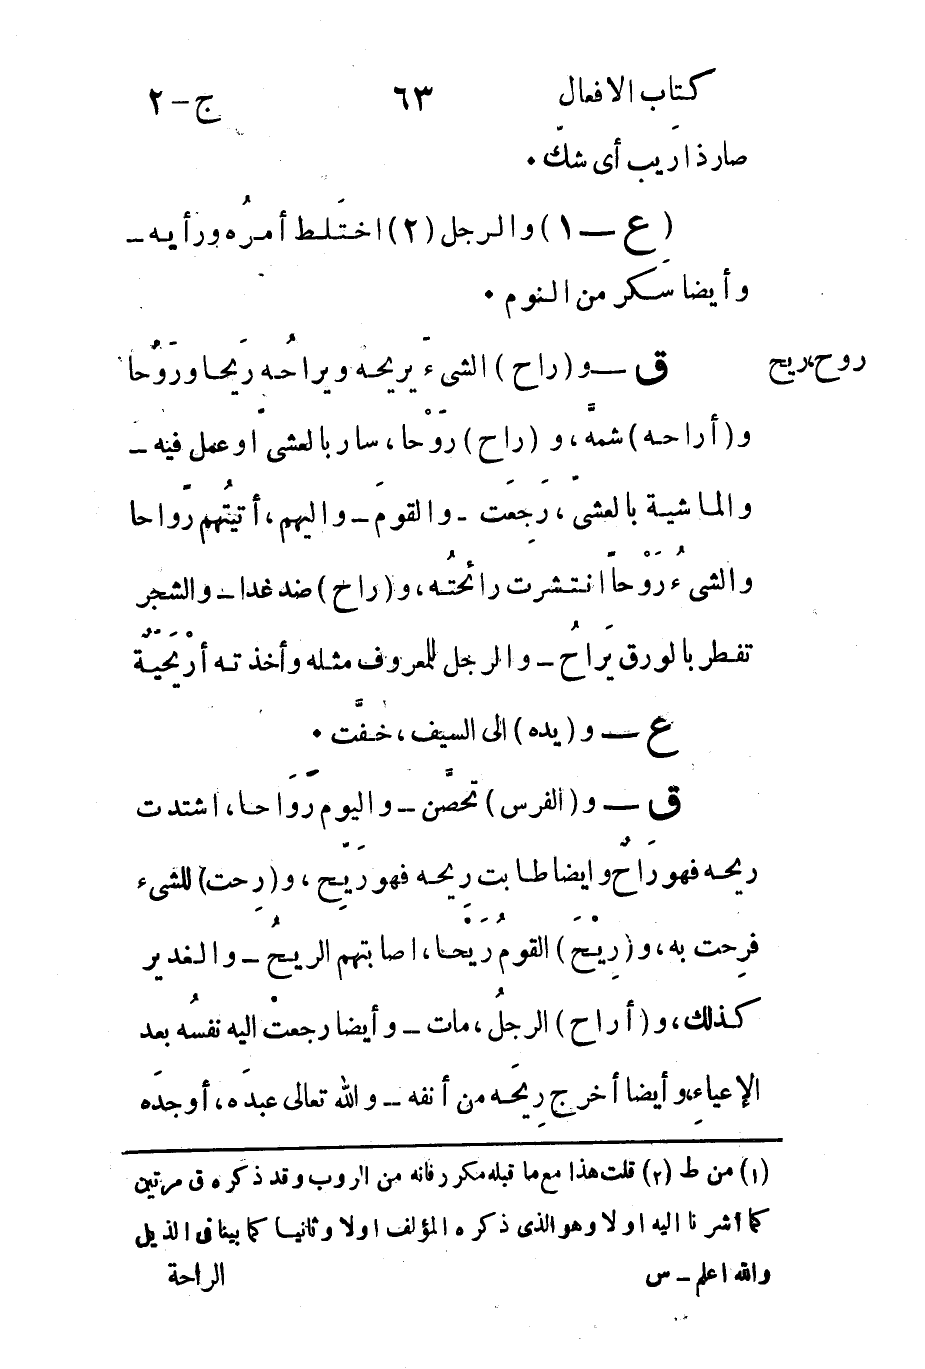 كتاب الافعال ٦٣ ج-٢
صار ذا رَيب أى شكّ.
(ع ــ ١) والرجل (٢) اختَلط أمرُه ورأيه ــ
وأيضا سَكر من النوم.
روح، ريح
ق ــ و (راح) الشىءَ يَريحه ويراحُه رَيحا ورَوْحًا
و (أراحه) شمّه، و (راح) رَوْحا، سار بالعشىّ او عمل فيه ــ
والماشية بالعشىّ، رَجَعَت ــ والقومَ ــ واليهِم، أتيتُهم رَواحا
والشىءُ رَوْحاً انتشرت رائحتُه، و (راح) ضد غدا ــ والشجر
تفطر بالورق يَراحُ ــ والرجل للمعروف مثله وأخذته أرْيَحَيّةٌ
ع ــ و (يده) الى السيف، خفّت.
ق ــ و (الفرس) تحصَّن ــ واليوم رَواحا، اشتدت
ريحه فهو رَاحٌ وايضا طابت رِيحه فهو رَيِّح، و (رِحت) للشىء
فرِحت به، و (رِيْحَ) القومُ رَيْحا، اصابتهم الريحُ ــ والغدير
كذلك، و (أراح) الرجلُ، مات ــ وأيضا رجعتْ اليه نفسُه بعد
الإعياءِ، وأيضا أخرج رِيحَه من أنفه ــ والله تعالى عبدَه، أوجدَه
(١) من ط (٢) قلت هذا مع ما قبله مكرر فانه من الروب وقد ذكره ق مرتين
كما أشرنا اليه اولا وهو الذى ذكره المؤلف اولا وثانيا كما بينا فى الذيل
والله اعلم ــ س الراحة